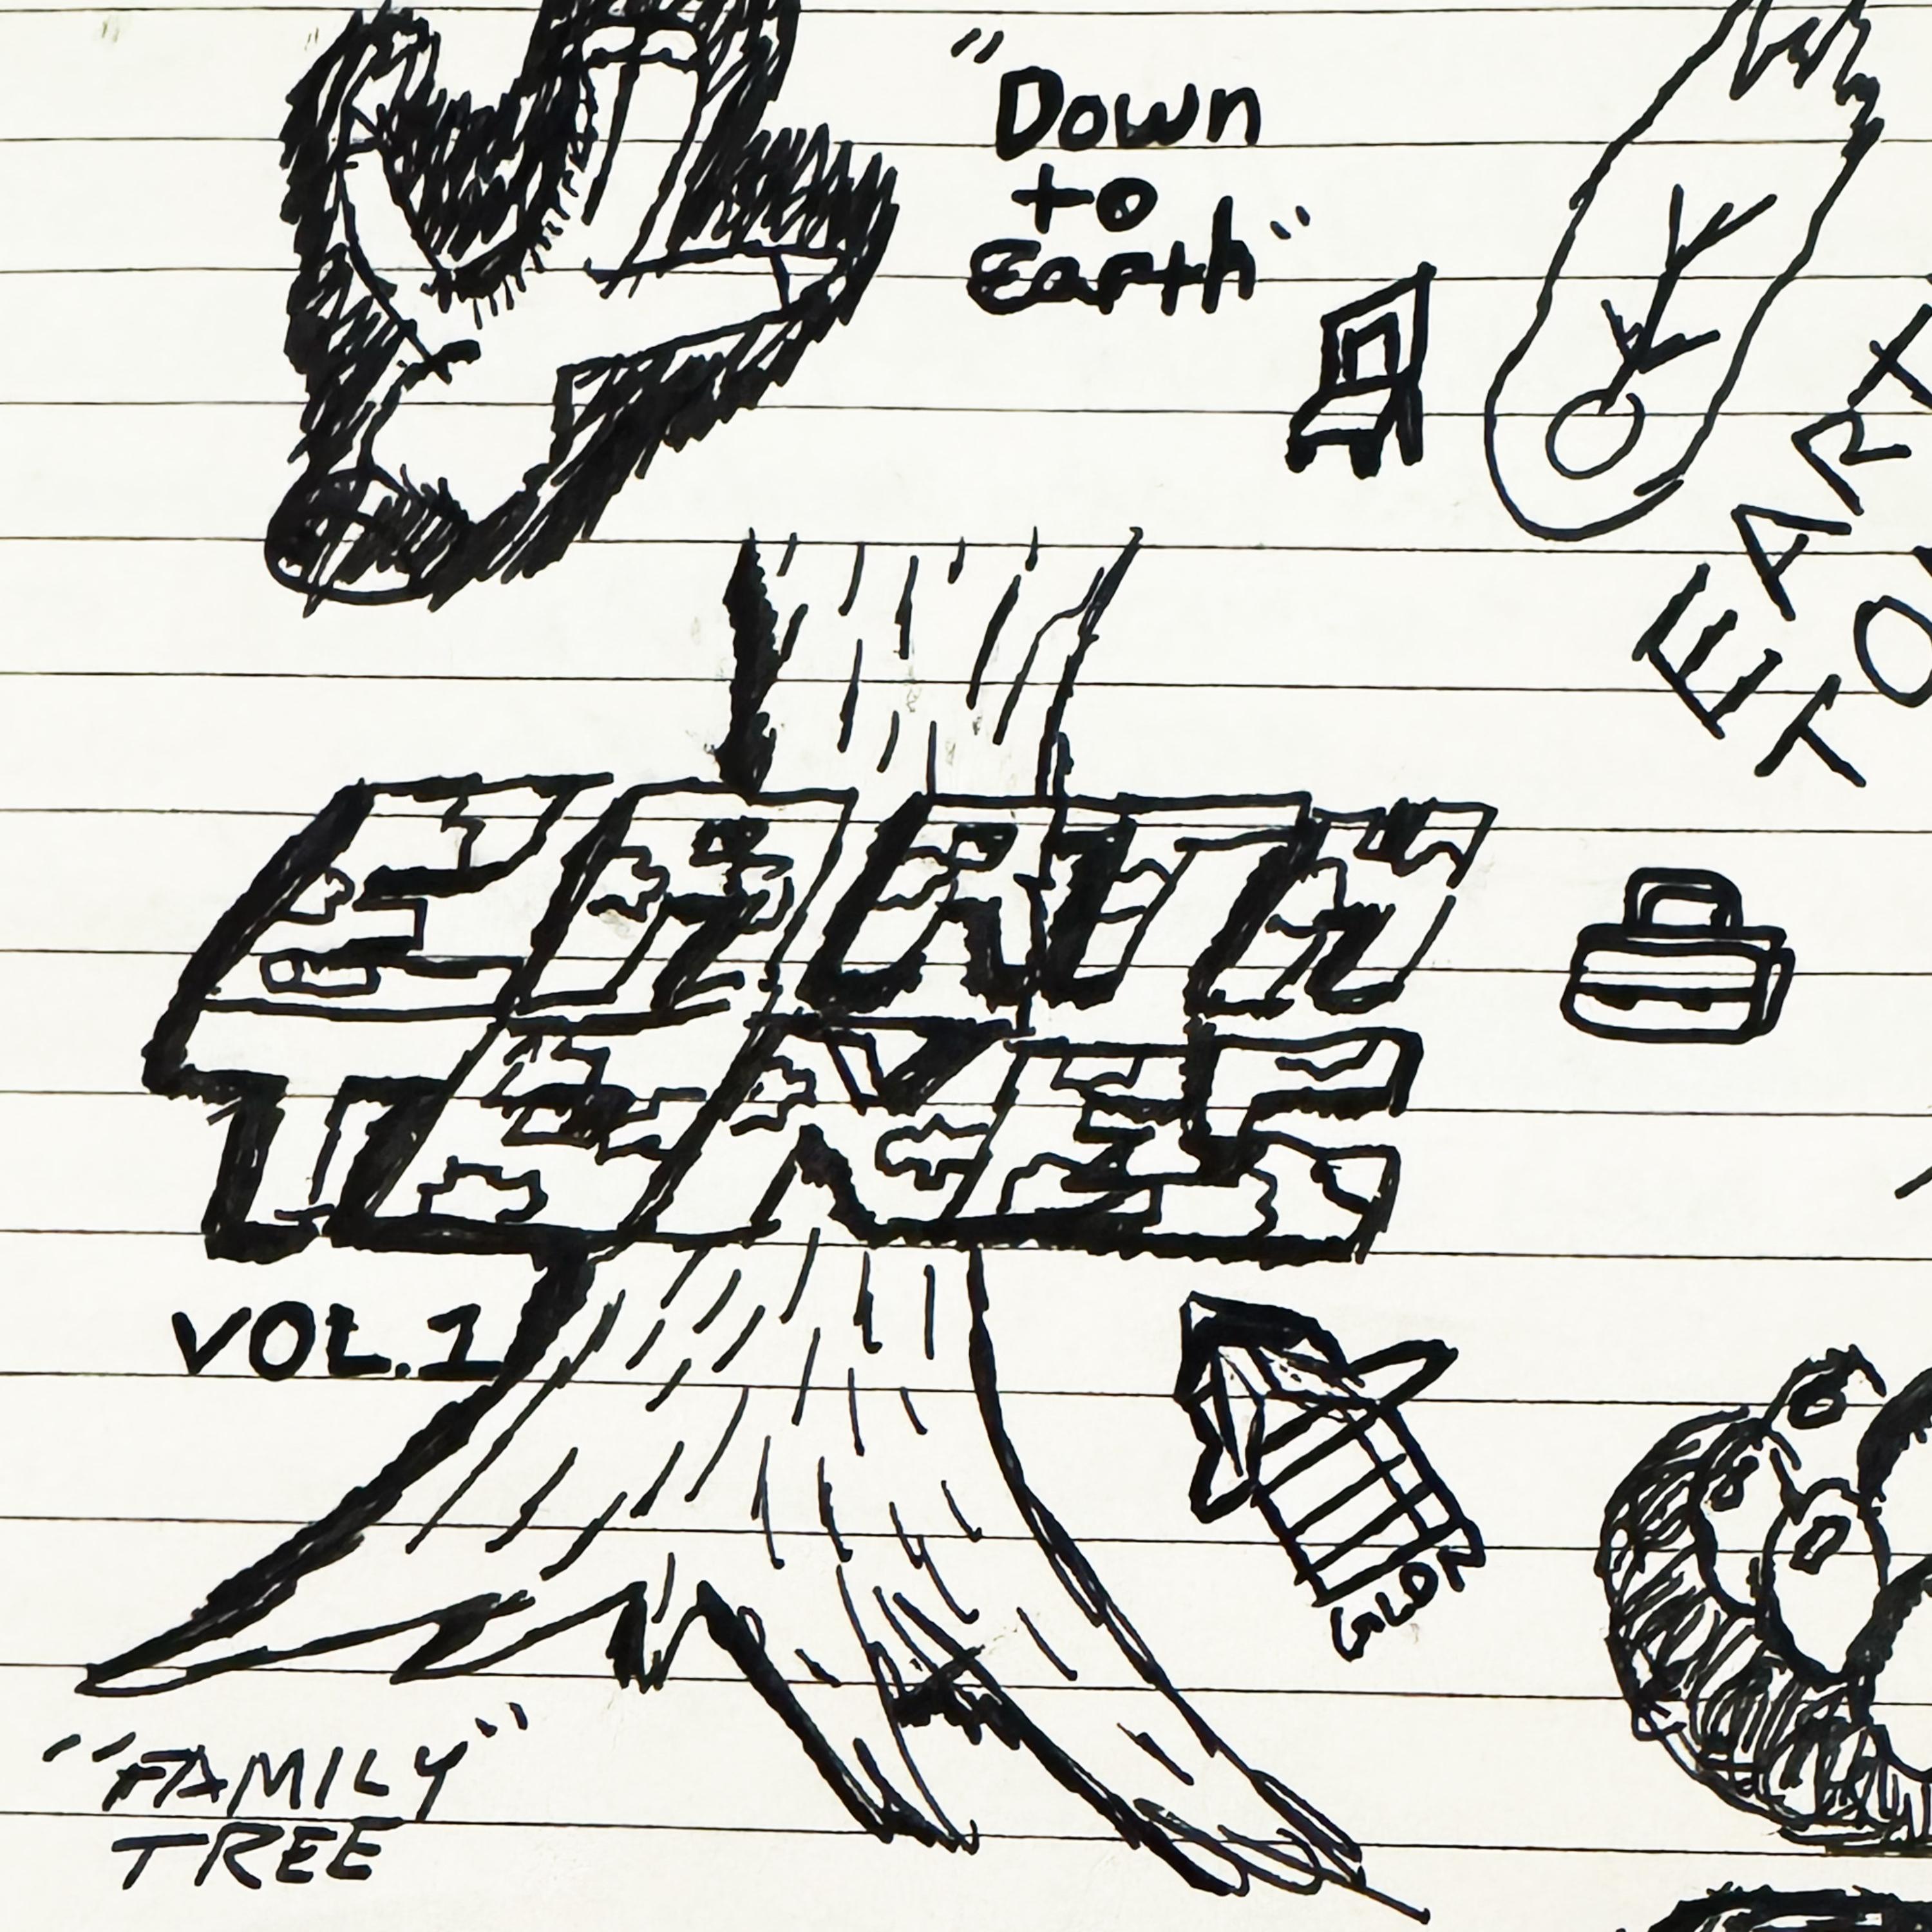 "Down
to
Earth"
EART
TO
EARTH
TONES
VOL.1
"FAMILY"
TREE